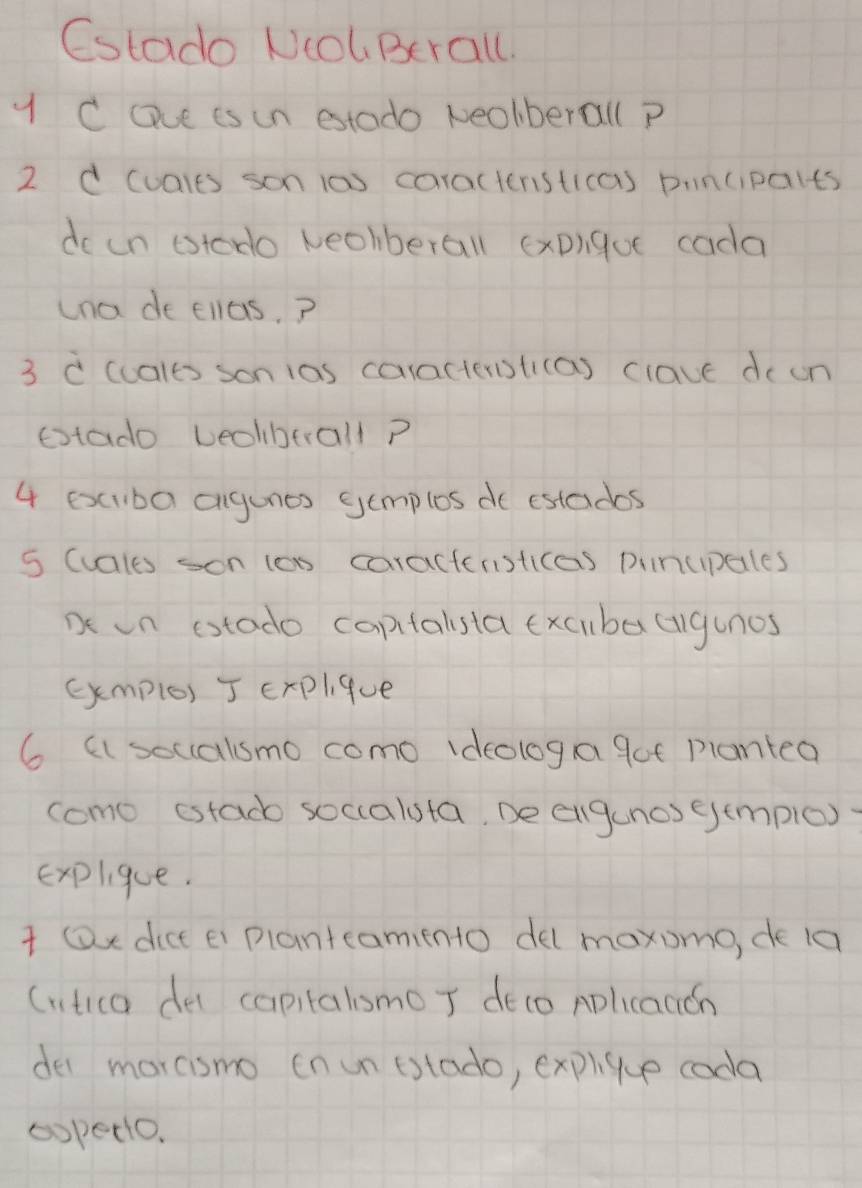 Estado Neoliberall.
1 ¿ Que es un estado Neoliberall ?
2 ¿ Cuales son las caracteristicas principales
de un estado Neoliberall explique cada
una de ellas. ?
3 ¿ Cuales son las caracteristicas clave de un
estado Neoliberall ?
4 excriba algunos ejemplos de estados
5 Cuales son las caracteristicas principales
De un estado capitalista excriba algunos
Ejemplos J explique
6 el socialismo como ideologia que plantea
como estado socialista. De algunos ejemplos -
explique.
7 Que dice el planteamiento del maxismo, de la
Critica del capitalismo J de co Aplicación
del marcismo en un estado, explique cada
aspecto.